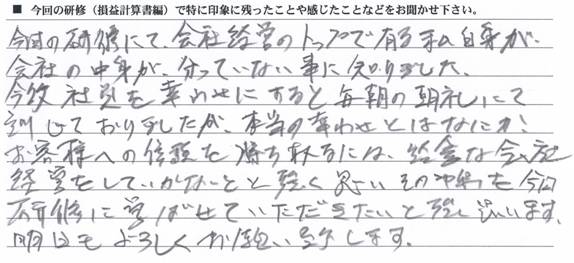 ■ 今回の研修（損益計算書編）で特に印象に残ったことや感じたことなどをお聞かせ下さい。
今回の研修にて、会社経営のトップで有る私自身が、
会社の中身が、分っていない事に気づかされました、
今後社員を幸わせにすると毎朝の朝礼にて
しておりましたが、本当の幸わせとはなにか！
お客様への信頼を勝ち取るには、健全な会社
経営をしていかないとと強く思いその中身を今回
研修に学ばせていただきたいと強く思います。
明日もよろしくお願い致します。